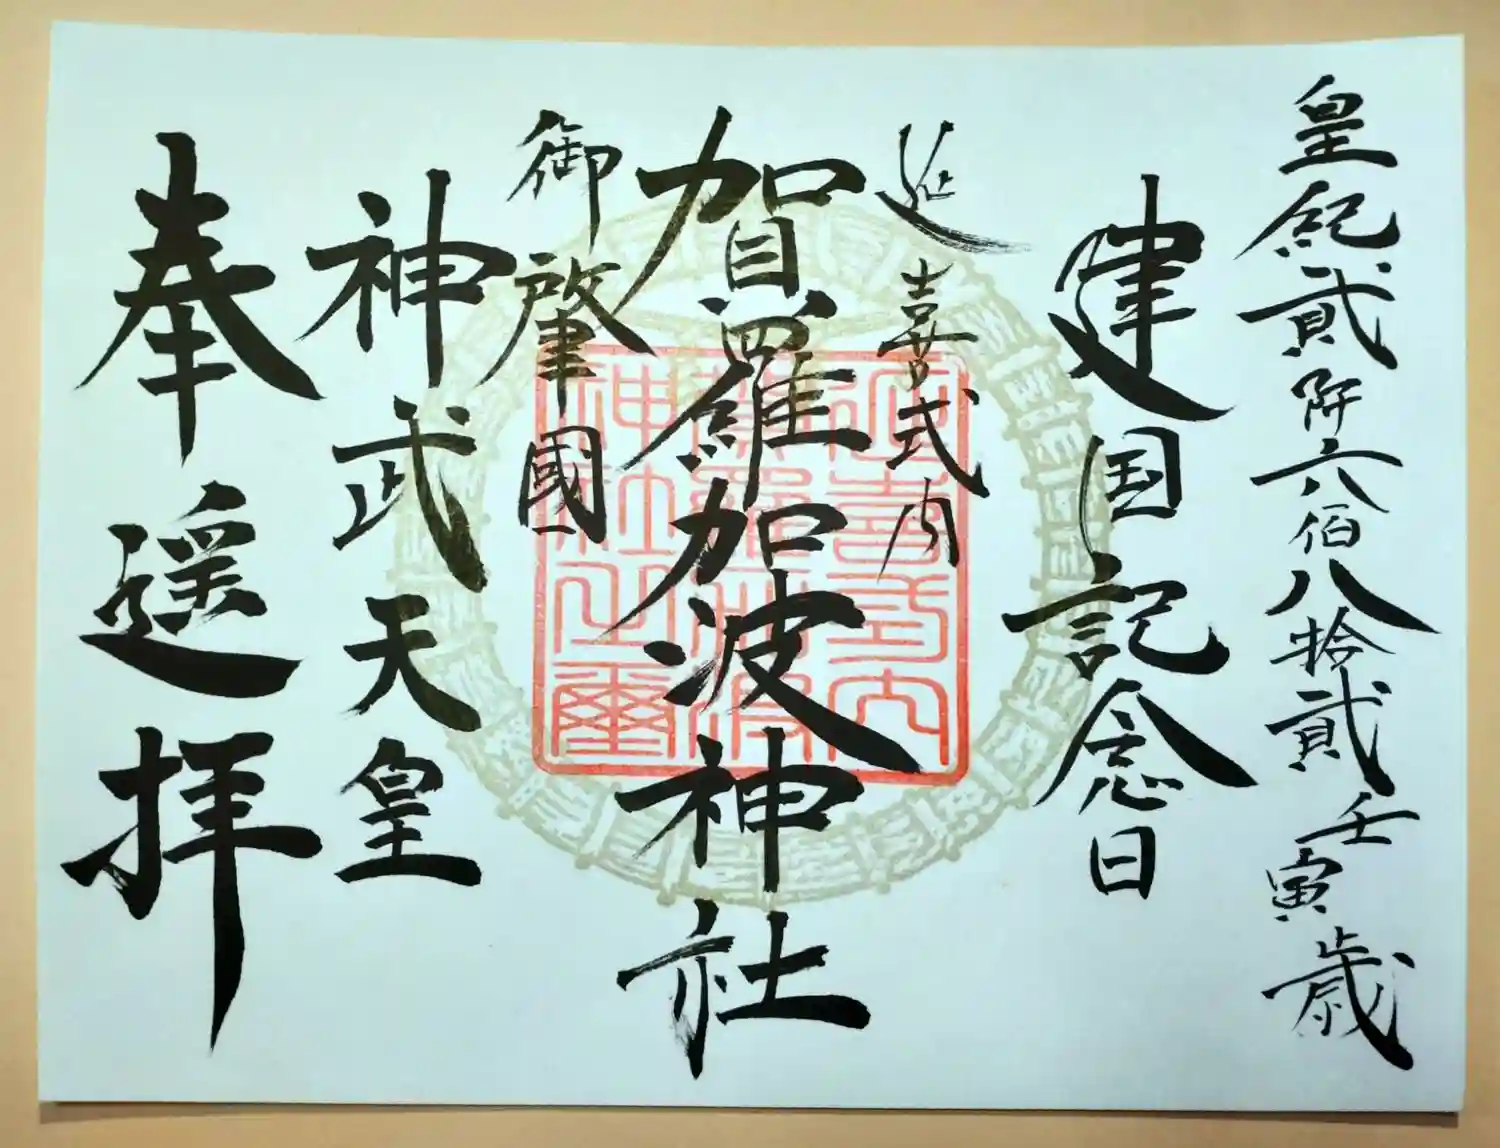 皇紀貳阡六佰八拾貳壬寅歳
建国記念日
延喜式内
賀羅加波神社
御肇國
神武天皇
奉遥拝
延喜式内
賀羅加波
神社之璽